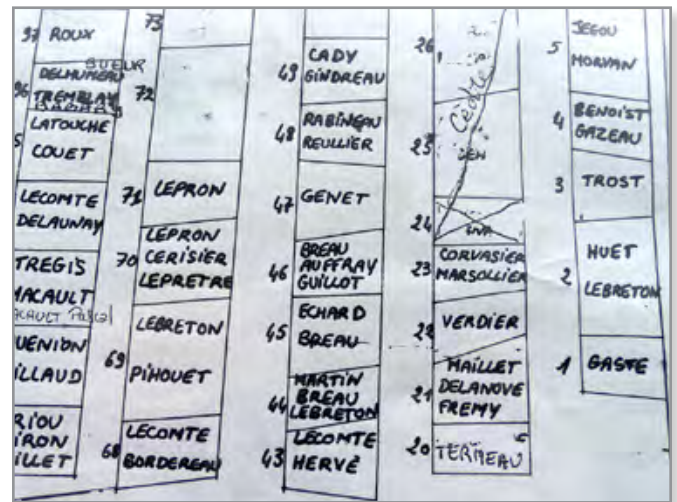 97 ROUX
GUEUR
DELHUMEAU
96 TREMBLAY
LATOUCHE
COUET
LECOMTE
DELAUNAY
TREGIS
MACAULT
Pascal
UENION
ILLAUD
RIOU
IRON
ILLET
73
72
71 LEPRON
70 LEPRON
CERISIER
LEPRETRE
LEBRETON
69 PIHOUET
68 LECOMTE
BORDEREAU
49 CADY
GINDREAU
48 RABINEAU
REULLIER
47 GENET
46 BREAU
AUFFRAY
GUILLOT
45 ECHARD
BREAU
44 MARTIN
BREAU
LEBRETON
43 LECOMTE
HERVÉ
26
Cèdre
25
24
23 CORVASIER
MARSOLLIER
22 VERDIER
21 MAILLET
DELANOVE
FREMY
20 TERMEAU
5 JEGOU
MORVAN
4 BENOIST
GAZEAU
3 TROST
2 HUET
LEBRETON
1 GASTE